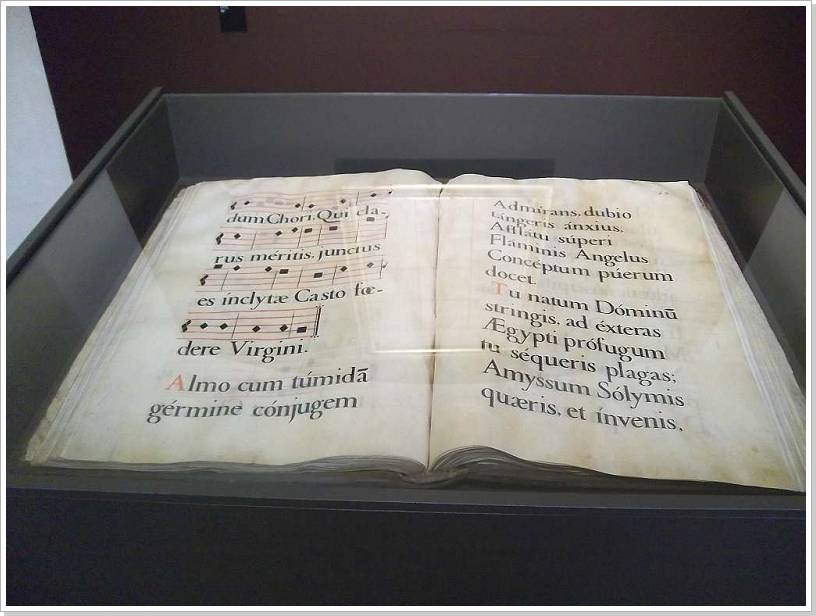 dum Chori. Qui cla-
rus méritis, junctus
es ínclytæ Casto fœ-
dere Virgini.
Almo cum túmidā
gérmine cónjugem
Admirans, dubio
tángeris ánxius.
Afflátu súperi
Fláminis Angelus
Concéptum púerum
docet.
Tu natum Dóminū
stringis, ad éxteras
Ægypti prófugum
tu séqueris plagas;
Amyssum Sólymis
quæris, et ínvenis.